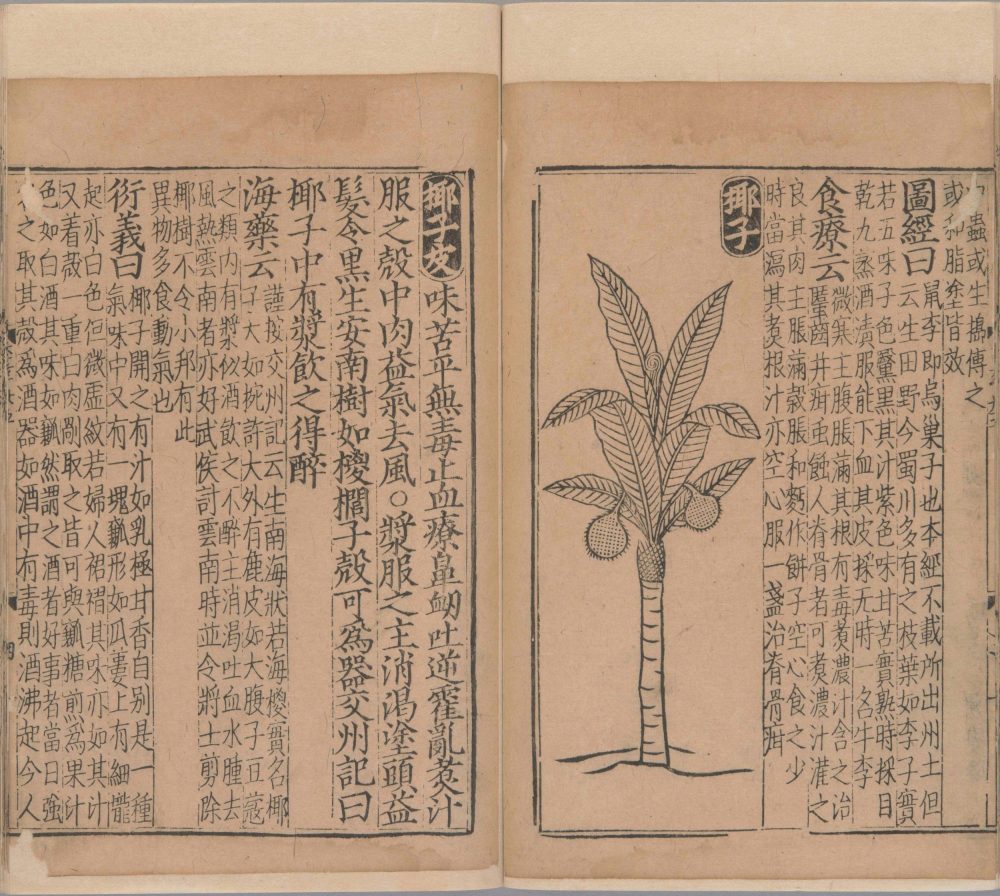 蟲或生搗傅之
或和脂塗皆效
圖經曰 鼠李即烏巢子也本經不載所出州土但
云生田野今蜀川多有之枝葉如李子實
若五味子色黳黑其汁紫色味甘苦實熟時採日
乾九蒸酒漬服能下血其皮採无時一名牛李
食療云 微寒主腹脹滿其根有毒煑濃汁含之治
䘌齒并疳虫蝕人脊骨者可煑濃汁灌之
良其肉主脹滿穀脹和麪作餅子空心食之少
時當瀉其煑根汁亦空心服一盞治脊骨疳
椰子
椰子皮味苦平無毒止血療鼻衂吐逆霍亂煑汁
服之殼中肉益氣去風○漿服之主消渴塗頭益
髮令黑生安南樹如椶櫚子殼可爲器交州記曰
椰子中有漿飲之得醉
海藥云 謹按交州記云生南海狀若海椶實名椰
子大如椀許大外有麁皮如大腹子豆蔻
之類內有漿似酒飲之不醉主消渴吐血水腫去
風熱雲南者亦好武侯討雲南時並令將士剪除
椰樹不令小邦有此
異物多食動氣也
衍義曰 椰子開之有汁如乳極甘香自别是一種
氣味中又有一塊瓤形如瓜蔞上有細壠
起亦白色但微虚紋若婦人裙褶其味亦如其汁
又着殼一重白肉剮取之皆可與瓤糖煎爲果汁
色如白酒其味如瓤然謂之酒者好事者當日強
名之取其殼爲酒器如酒中有毒則酒沸起今人
四